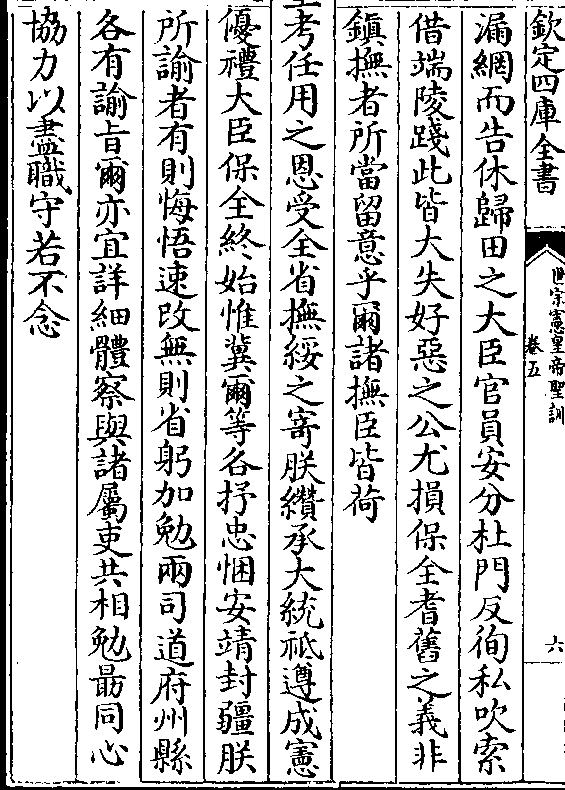 欽定四庫全書
世宗憲皇帝聖訓
卷五
六
漏網而告休歸田之大臣官員安分杜門反徇私吹索
借端陵踐此皆大失好惡之公尤損保全耆舊之義非
鎮撫者所當留意乎爾諸撫臣皆荷
考任用之恩受全省撫綏之寄朕纘承大統祗遵成憲
優禮大臣保全終始惟冀爾等各抒忠悃安靖封疆朕
所諭者有則悔悟速改無則省躬加勉兩司道府州縣
各有諭旨爾亦宜詳細體察與諸屬吏共相勉勗同心
協力以盡職守若不念